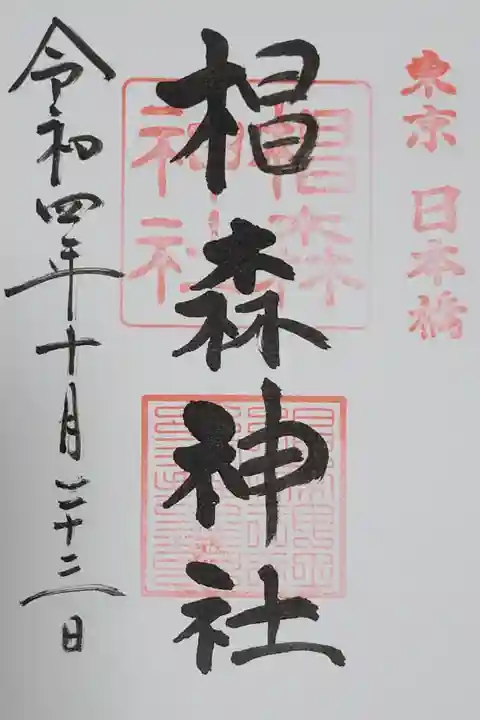 東京 日本橋
椙森神社
椙森神社
令和四年十月二十二日